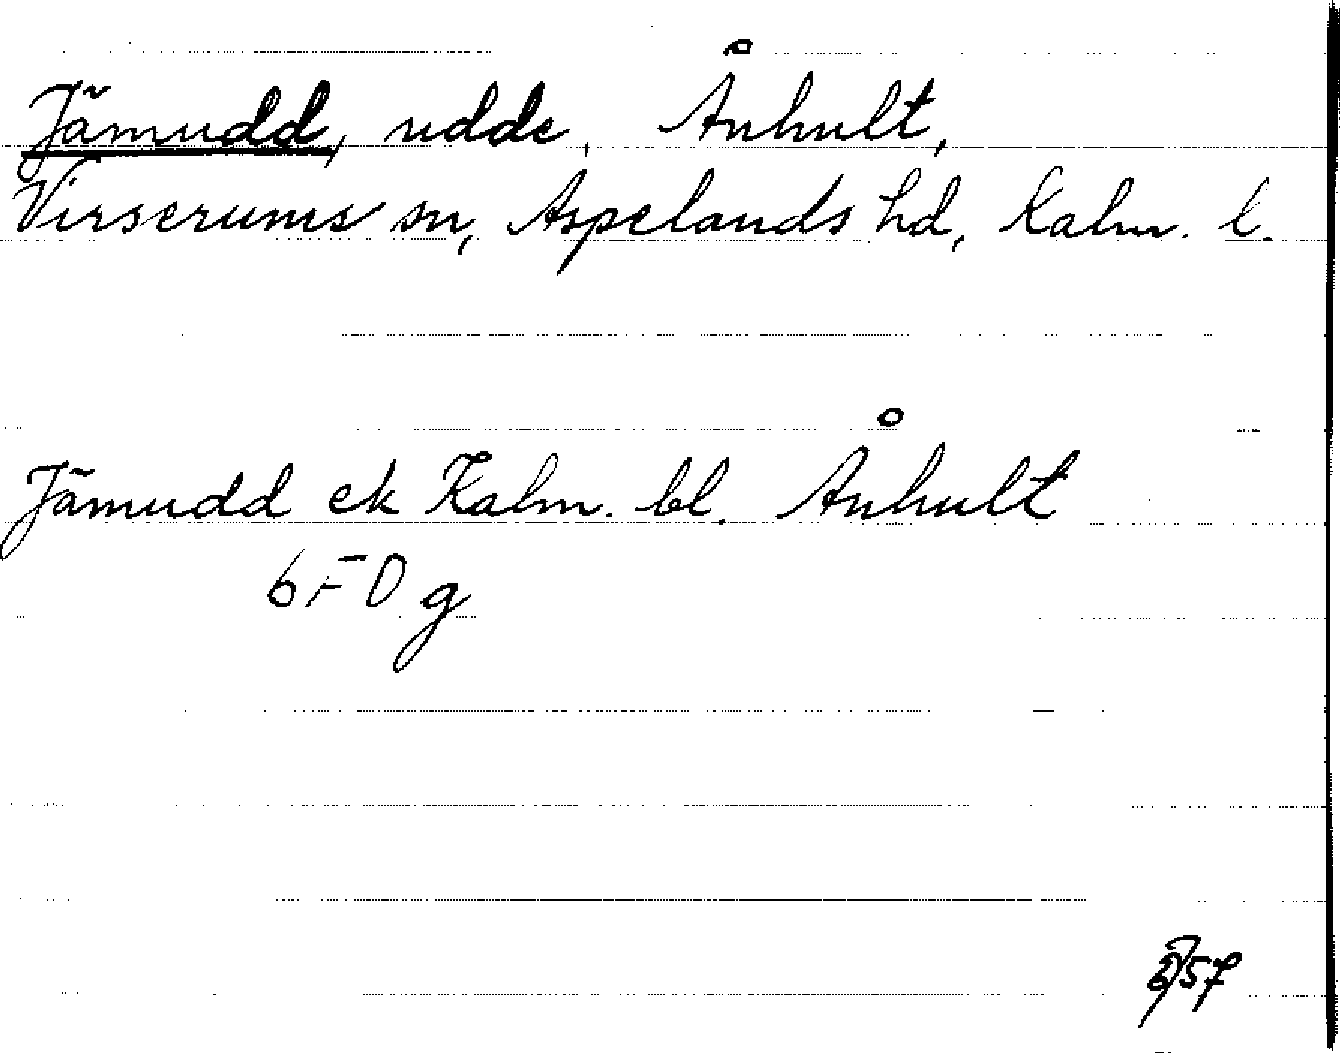 Jämudd, udde, Ånhult,
Virserums sn, Aspelands hd, Kalm. l.
Jämudd ek Kalm. bl. Ånhult
6 F 0 g